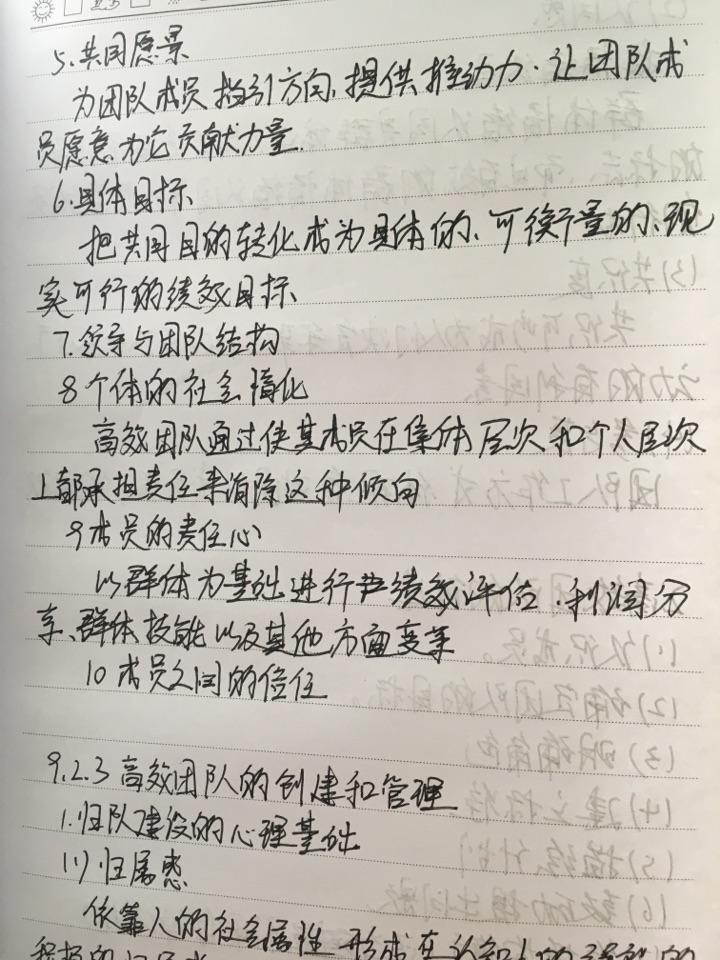 5.共同愿景
为团队成员指引方向,提供推动力.让团队成
员愿意为它贡献力量.
6.具体目标
把共同目的转化成为具体的、可衡量的、现
实可行的绩效目标
7.领导与团队结构
8个体的社会惰化
高效团队通过使其成员在集体层次和个人层次
上都承担责任来消除这种倾向
9成员的责任心
以群体为基础进行 绩效评估.利润分
享、群体技能以及其他方面变革
10成员之间的信任
9.2.3高效团队的创建和管理
1.归队建设的心理基础
(1)归属感
依靠人的社会属性 形成在认知上的